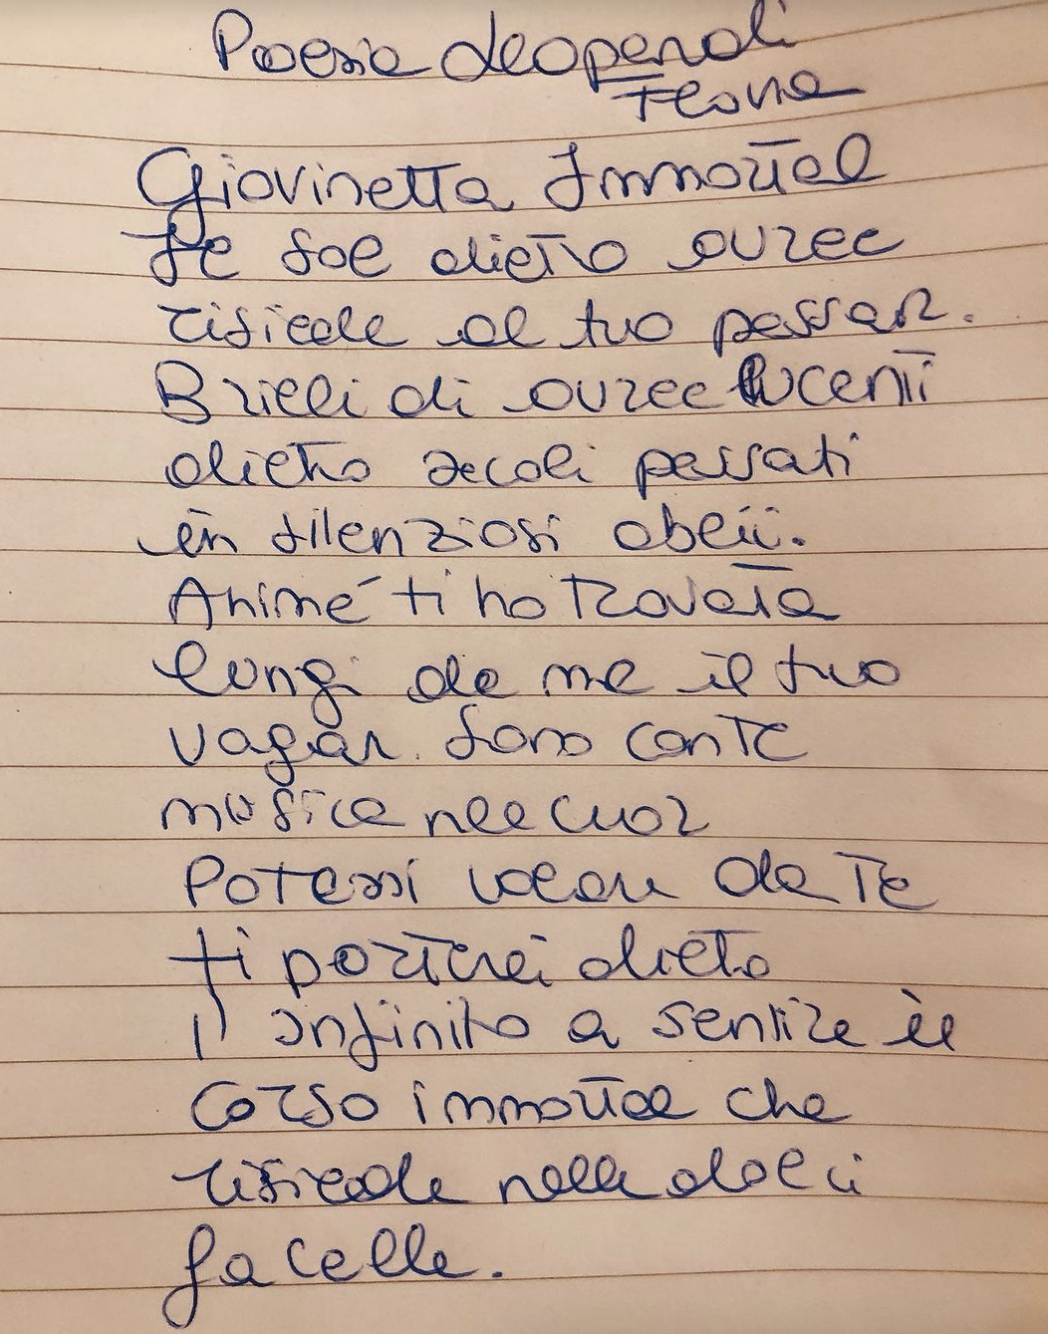 Poesia Leopardi
Giovinetta Immortal
Se sol dietro
risiede al tuo passar.
Brilli di lucenti
dietro secoli passati
in silenziosi
Animé ti ho trovata
lungi da me il tuo
vagar. Sono con te
musica nel cuor
Potessi volar da te
ti porterei dietro
l' infinito a sentire il
corso immortal che
risiede nelle dolci
facelle.